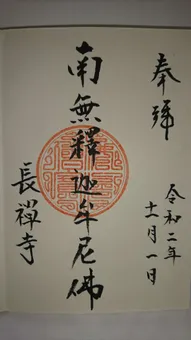 奉號
令和二年十一月一日
南無釋迦牟尼佛
長禪寺